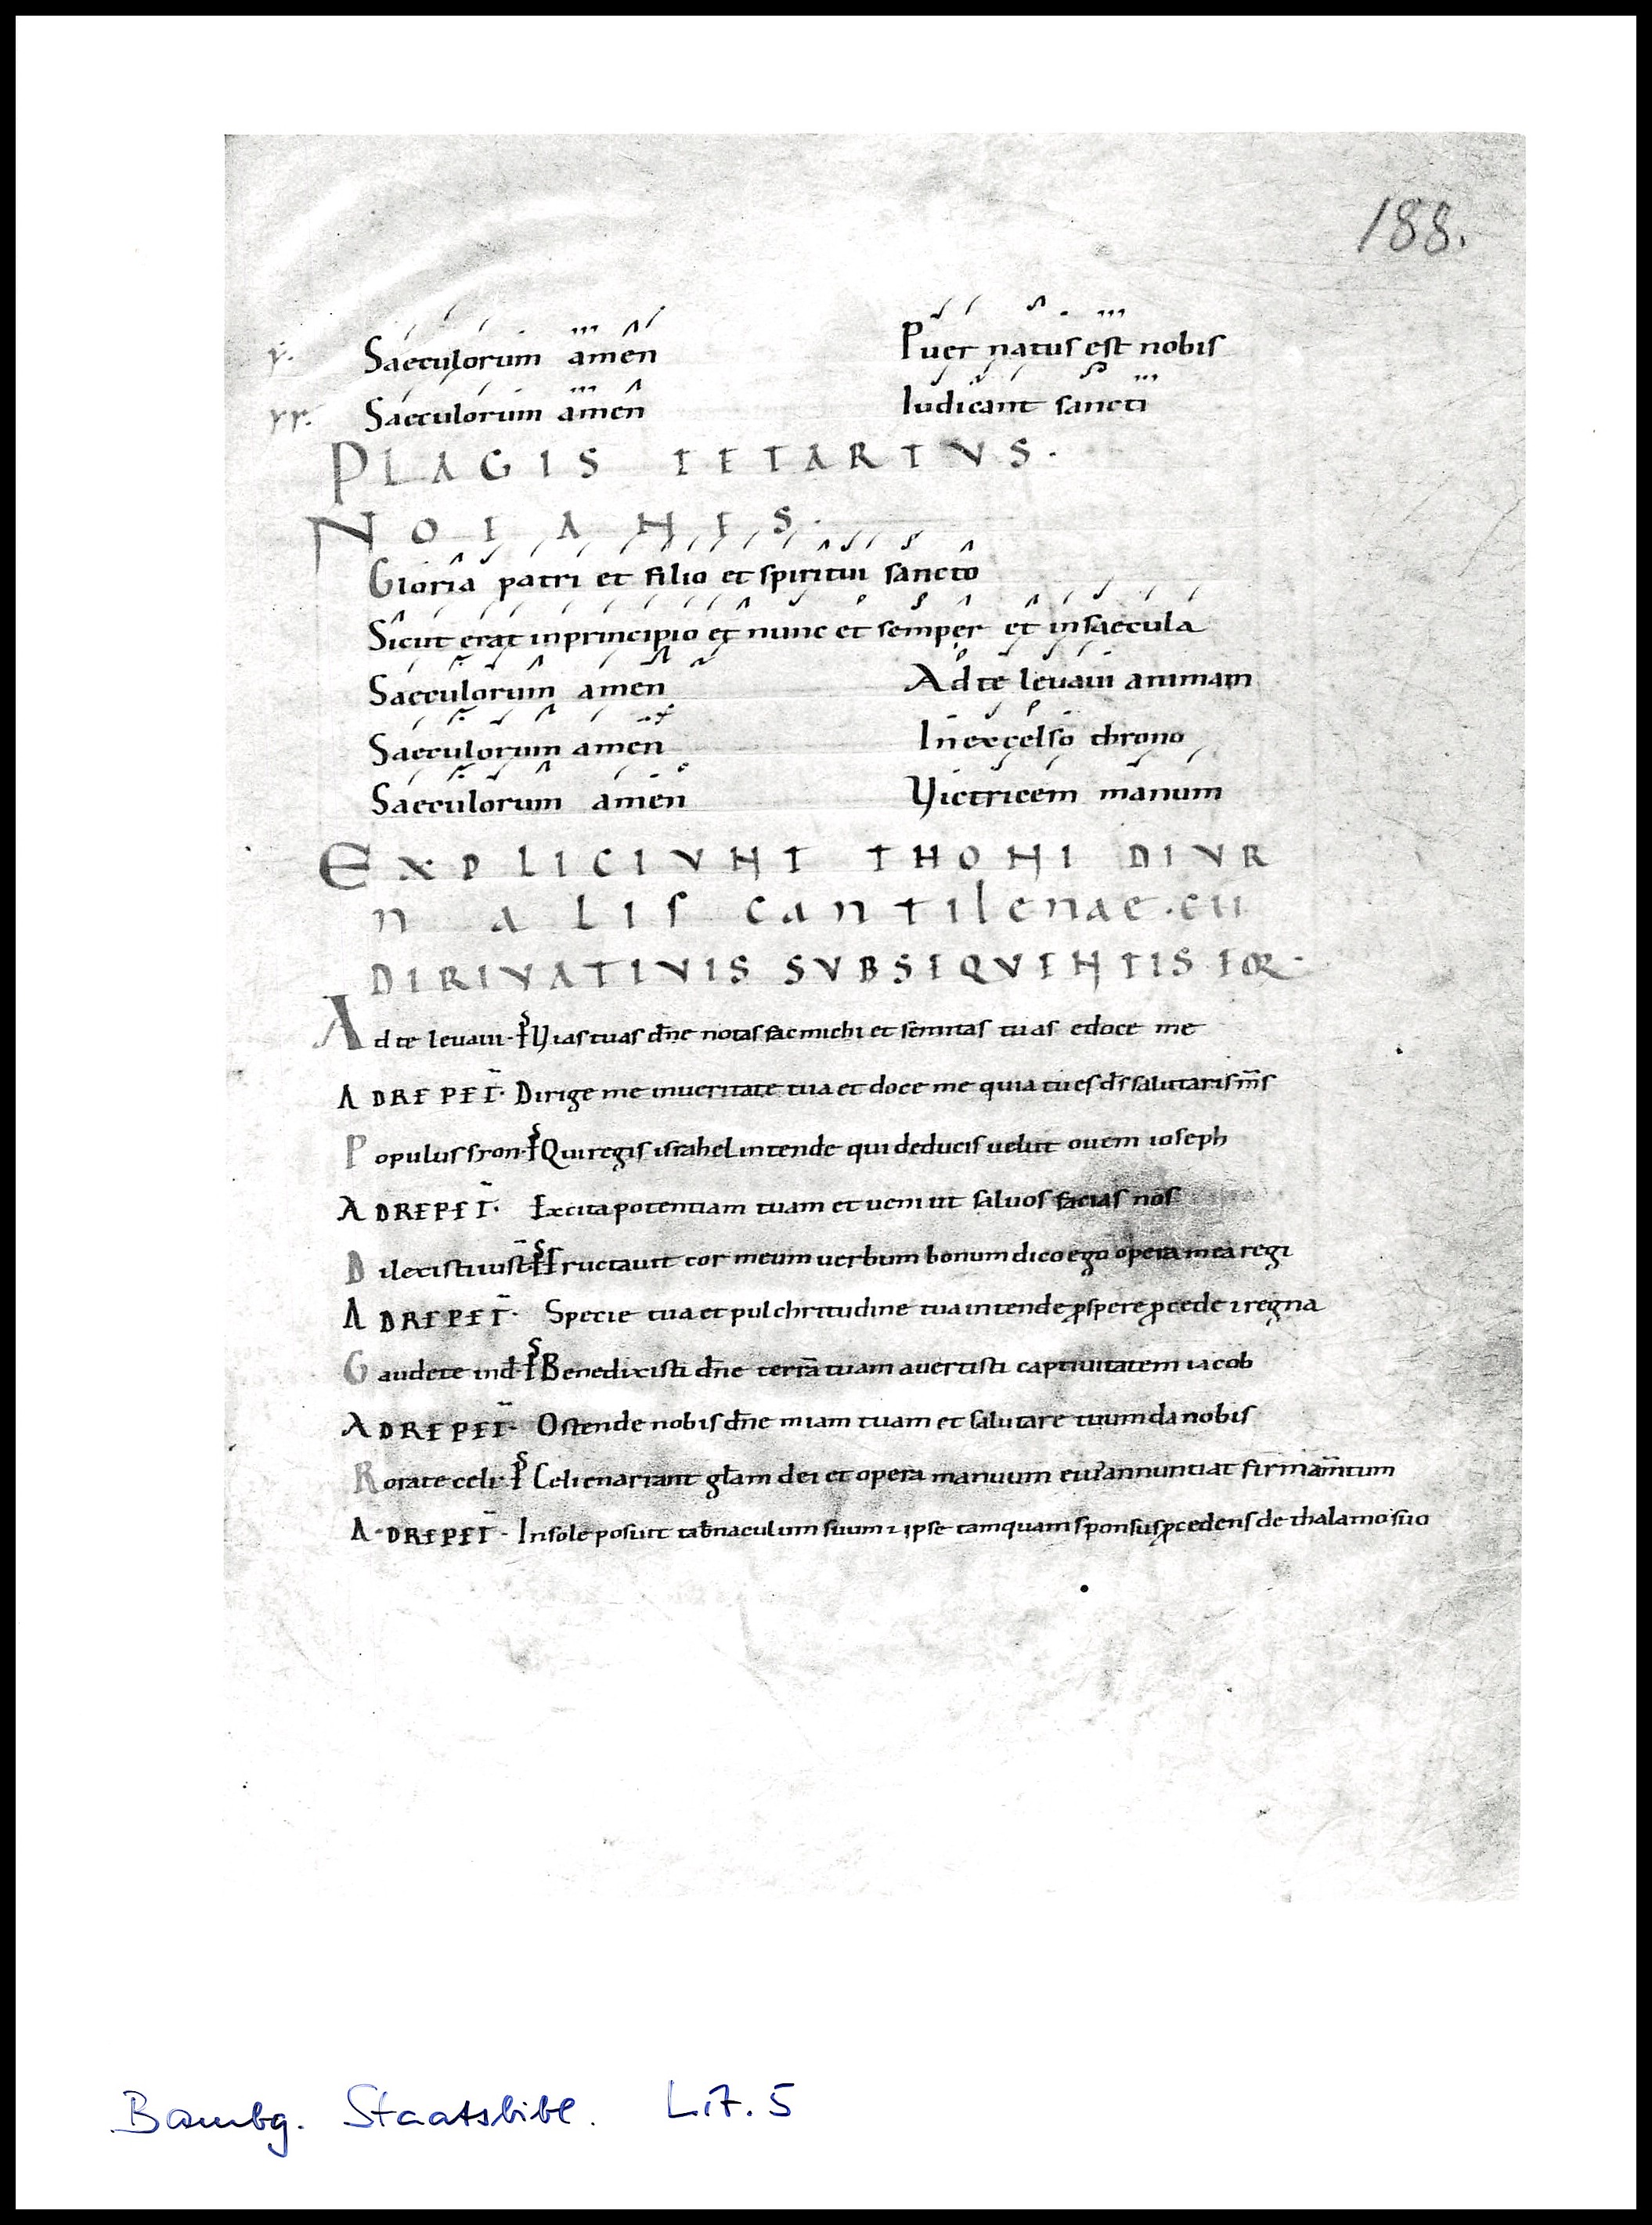 188.
v. Saeculorum amen Puer natus est nobis
vr. Saeculorum amen Iudicant sancti
PLAGIS TETARTVS.
NOEANES.
Gloria patri et filio et spiritui sancto
Sicut erat inprincipio et nunc et semper et insaecula
Saeculorum amen Adte levavi animam
Saeculorum amen Inexcelso throno
Saeculorum amen Victricem manum
EXPLICIVNT THONI DIVR
nalis cantilenae.cu
DIRIVATIVIS SVBSEQVENTIS EOR.
Ad te levavi. ps Vias tuas dn̄e notas fac michi et semitas tuas edoce me
ADREPET̄. Dirige me inveritate tua et doce me quia tu es ds̄ salutaris m̄s
Populus sion. ps Qui regis israhel intende qui deducis velut ovem ioseph
ADREPET̄. Excita potentiam tuam et veni ut salvos facias nos
Dilexisti iust̄ ps Eructavit cor meum verbum bonum dico ego opera mea regi
ADREPET̄. Specie tua et pulchritudine tua intende ꝓspere ꝓcede ⁊ regna
Gaudete ind̄. ps Benedixisti dn̄e terrā tuam avertisti captivitatem iacob
ADREPET̄. Ostende nobis dn̄e miam tuam et salutare tuum da nobis
Rorate celi. ps Celi enarrant gl̄am dei et opera manuum eius annuntiat firmam̄tum
A.DREPET̄. Insole posuit tab̄naculum suum ⁊ ipse tamquam sponsus ꝓcedens de thalamo suo
Bambg. Staatsbibl. Lit. 5